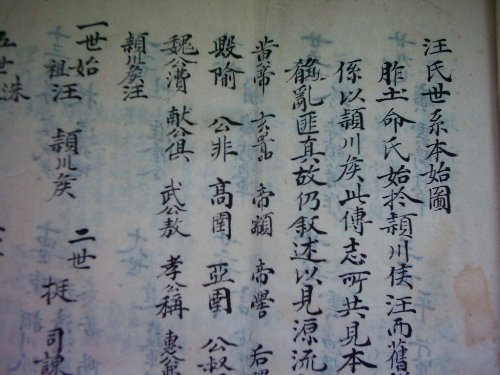 汪氏世系本始圖
胙土命氏始於頴川侯汪而舊
係以頴川侯此傳志所共見本
亂匪真故仍叙述以見源流
黄帝 玄囂 帝 帝嚳 后
毀隃 公非 高圉 亞圉 公叔
魏公濞 献公俱 武公敖 孝公稱 惠公
頴川侯汪
一世始祖汪 頴川侯 二世 挺 司諌
五世 洙